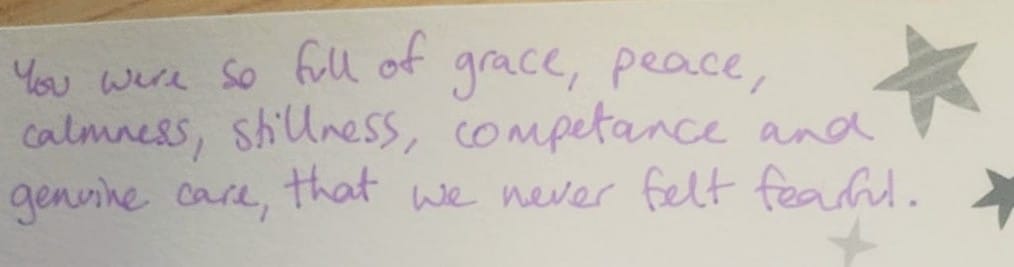 You were so full of grace, peace,
calmness, stillness, competance and
genuine care, that we never felt fearful.